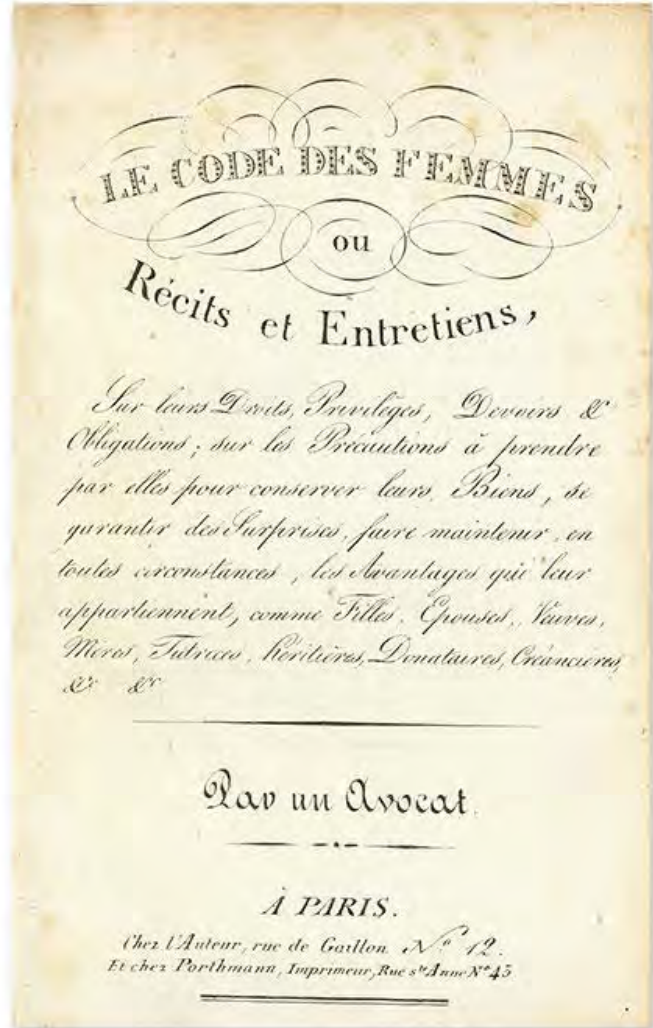 LE CODE DES FEMMES
ou
Récits et Entretiens,
Sur leurs Droits, Privilèges, Devoirs &
Obligations; sur les Précautions à prendre
par elles pour conserver leurs Biens, se
garantir des Surprises, faire maintenir, en
toutes circonstances, les Avantages qui leur
appartiennent, comme Filles, Epouses, Veuves,
Mères, Tutrices, héritières, Donataires, Créancières,
&c &c
Par un Avocat.
À PARIS.
Chez l'Auteur, rue de Gaillon Nº 12.
Et chez Porthmann, Imprimeur, Rue Ste Anne Nº 43